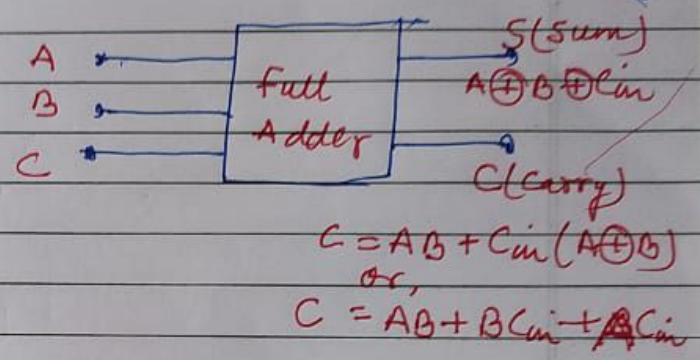 A
B
C
Full
Adder
S(Sum)
A⊕B⊕Cin
C(Carry)
C = AB + Cin (A⊕B)
or,
C = AB + BCin + ACin